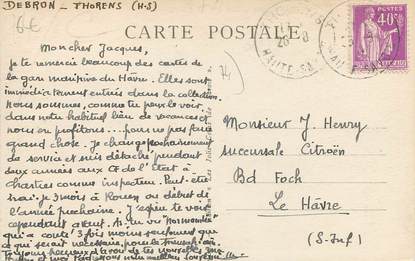 DEBRON - THORENS (H-S)
6€
CARTE POSTALE
40c
HAUTE-SA
74
Mon cher Jacques,
je te remercie beaucoup des cartes de
la gare maritime du Hâvre. Elles sont
immédiatement entrées dans la collection.
Nous sommes, comme tu peux le voir
dans notre habituel lieu de vacances et
nous en profitons... pour ne pas faire
grand chose. Je change prochainement
de service et suis détaché pendant
deux années aux CF de l'Etat à
Chartres comme inspecteur. Peut-être
irai-je 3 mois à Rouen au début de
l'année prochaine. J'espère te voir
cependant avant. As-tu vu "Normandie"
qui a couté 3 fois moins seulement que
ce qui serait nécessaire pour la
Monsieur J. Henry
succursale Citroën
Bd Foch
Le Hâvre
(S-Inf)